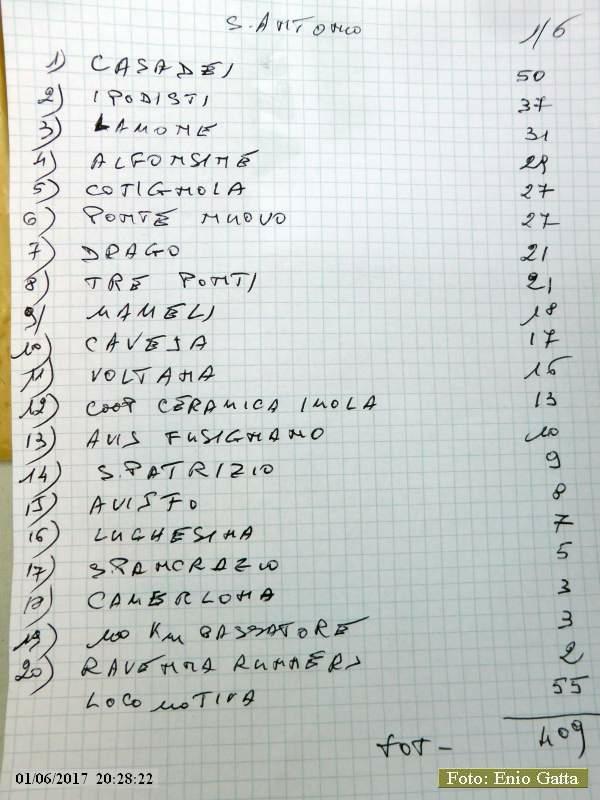 S. ANTONIO 1/6
1) CASADEI 50
2) IPODISTI 37
3) LAMONE 31
4) ALFONSINE 29
5) COTIGNOLA 27
6) PONTE NUOVO 27
7) DRAGO 21
8) TRE PONTI 21
9) MAMELI 18
10) CAVEJA 17
11) VOLTANA 16
12) COOP CERAMICA IMOLA 13
13) AVIS FUSIGNANO 10
14) S. PATRIZIO 9
15) AVIS FO 8
16) LUGHESINA 7
17) S. PANCRAZIO 5
18) CAMERLONA 3
19) 100 KM PASSATORE 3
20) RAVENNA RUNNERS 2
LOCOMOTIVA 55
TOT - 409
01/06/2017 20:28:22
Foto: Enio Gatta